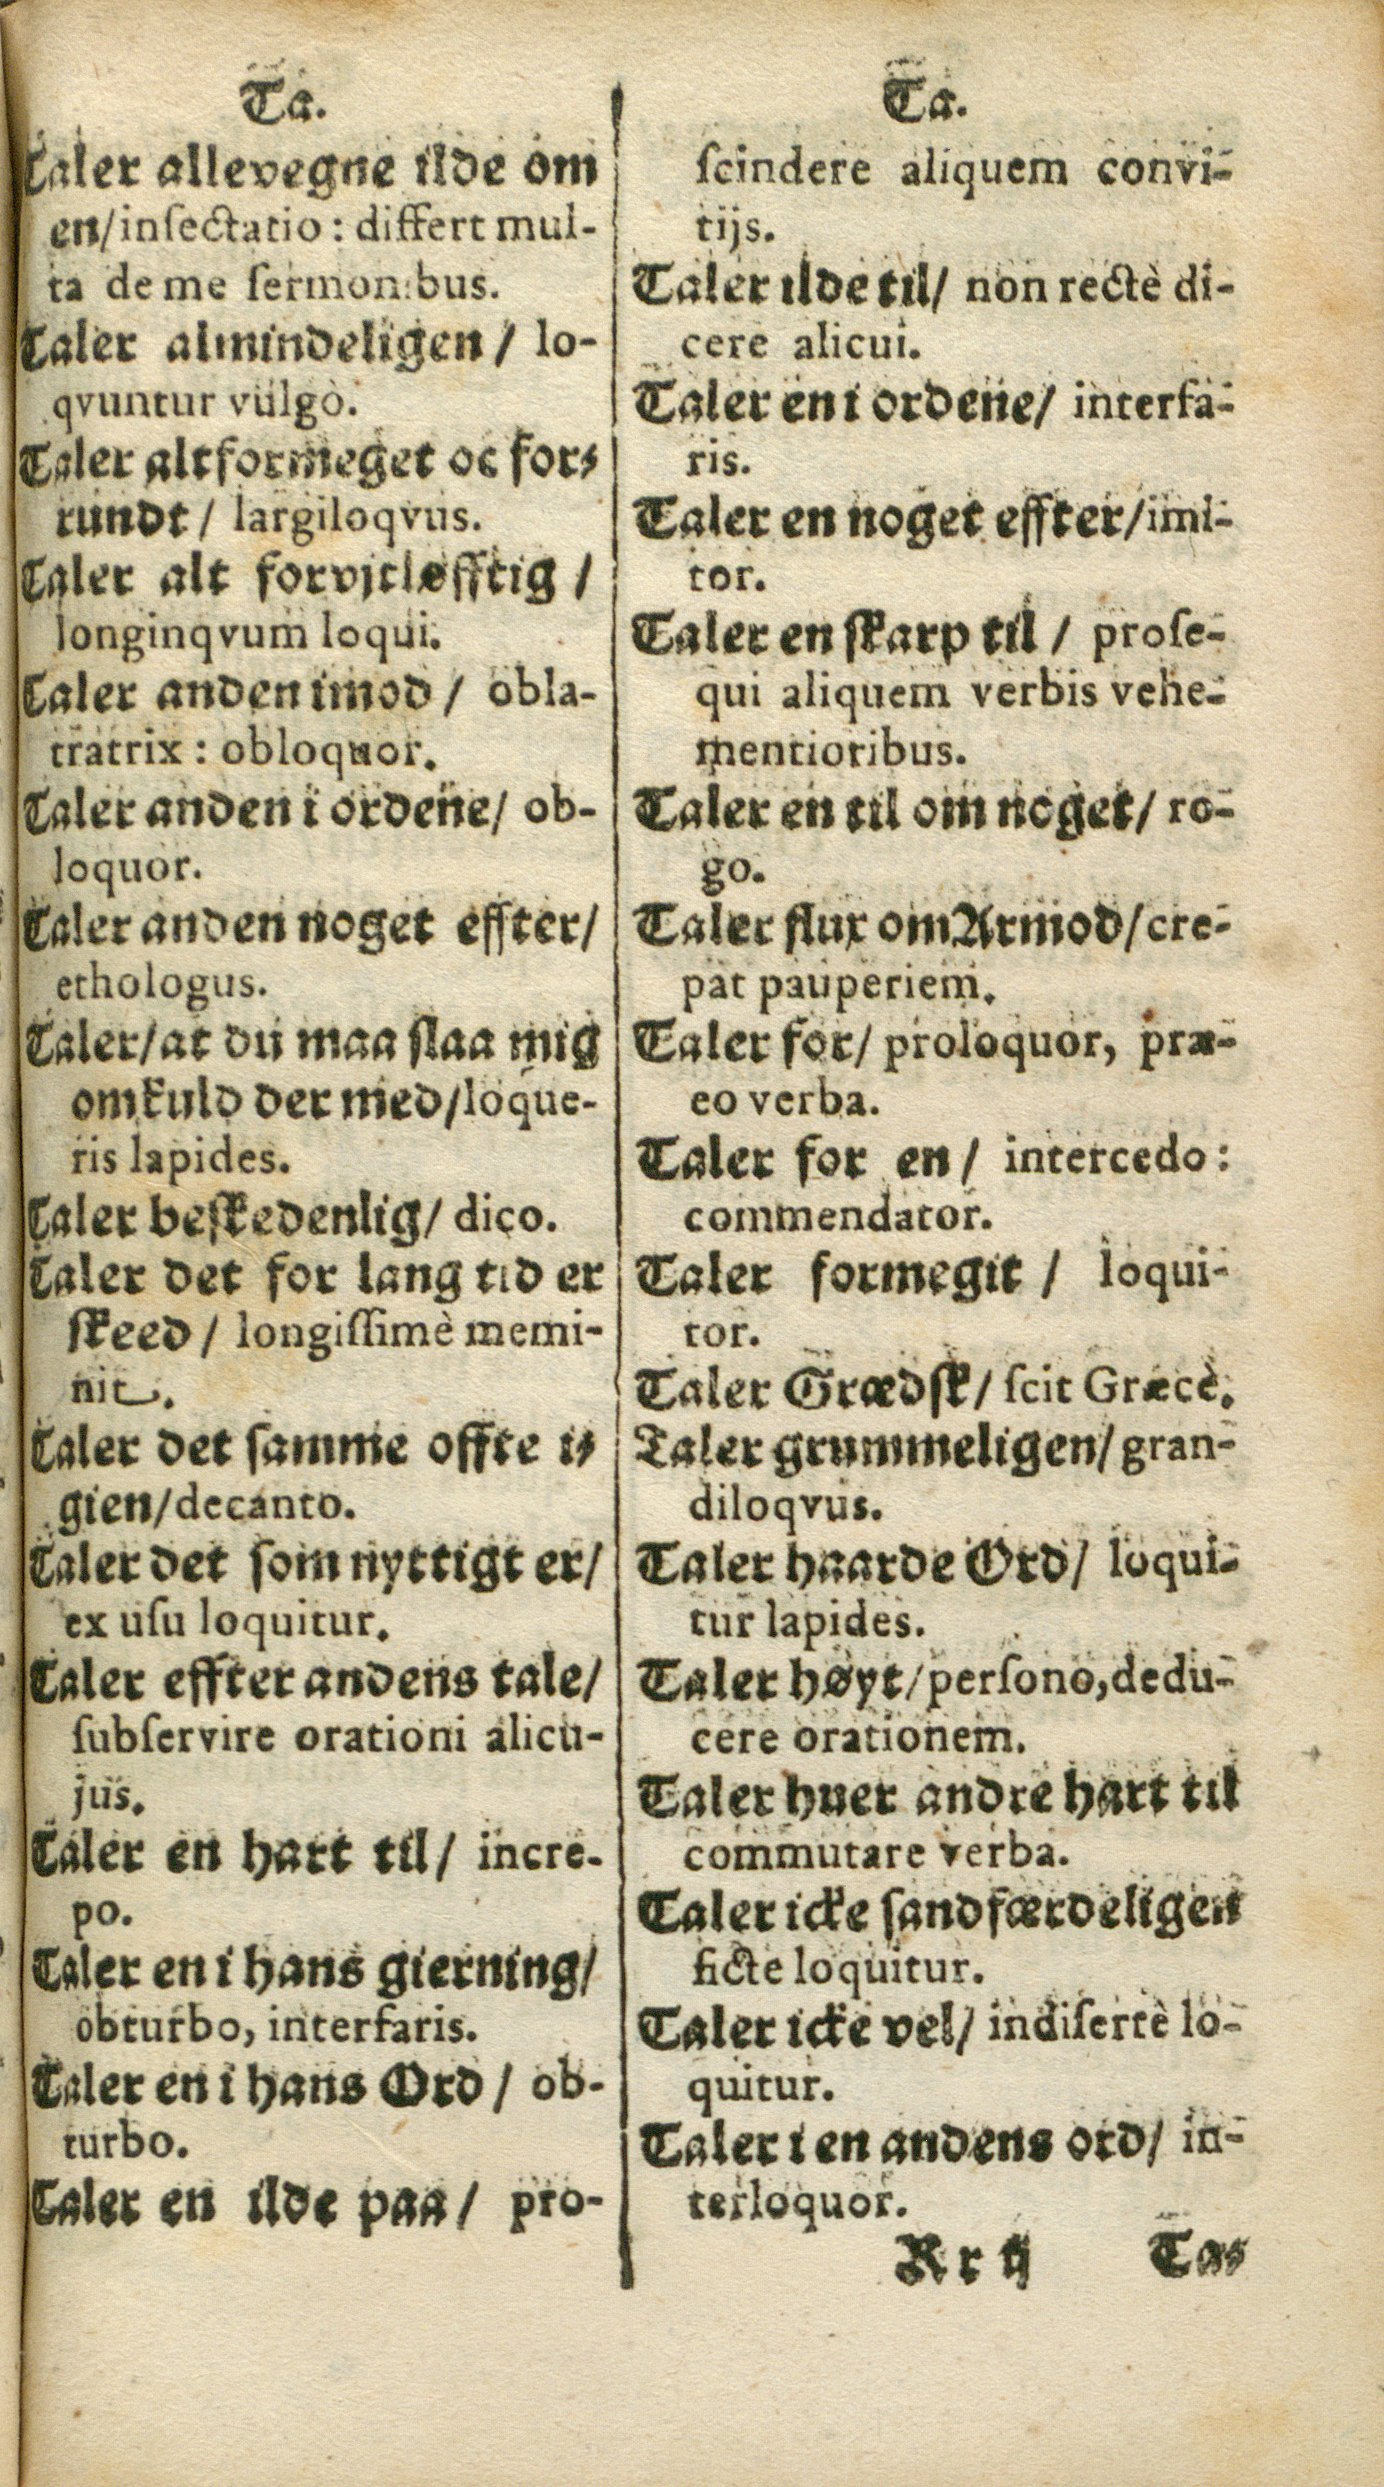 Ta.
Taler allevegne ilde om
en/ inſectatio: differt mul-
ta de me ſermonibus.
Taler almindeligen / lo-
qvuntur vulgò.
Taler altformeget oc for-
rundt / largiloqvus.
Taler alt forvjtløfftig /
longinqvum loqui.
Taler anden imod / obla-
tratrix: obloquor.
Taler anden i ordene/ ob-
loquor.
Taler anden noget effter/
ethologus.
Taler/ at du maa ſlaa mig
omkuld der med/ loque-
ris lapides.
Taler beſkedenlig/ dico.
Taler det for lang tid er
ſkeed / longiſſimè memi-
nit.
Taler det ſamme offte i-
gien/ decanto.
Taler det ſom nyttigt er/
ex uſu loquitur.
Taler effter andens tale/
ſubſervire orationi alicu-
jus.
Taler en hart til/ incre-
po.
Taler en i hans gierning/
obturbo, interfaris.
Taler en i hans Ord / ob-
turbo.
Taler en ilde paa / pro-
Ta.
ſcindere aliquem convi-
tijs.
Taler ilde til/ non rectè di-
cere alicui.
Taler en i ordene/ interfa-
ris.
Taler en noget effter/ imi-
tor.
Taler en ſkarp til / proſe-
qui aliquem verbis vehe-
mentioribus.
Taler en til om noget/ ro-
go.
Taler flux om Armod/ cre-
pat pauperiem.
Taler for/ proloquor, præ-
eo verba.
Taler for en / intercedo:
commendator.
Taler formegit / loqui-
tor.
Taler Grædſk/ ſcit Græcè.
Taler grummeligen/ gran-
diloqvus.
Taler haarde Ord/ loqui-
tur lapides.
Taler høyt/ perſono, dedu-
cere orationem.
Taler huer andre hart til
commutare verba.
Taler icke ſandfærdeligen
ficte loquitur.
Taler icke vel/ indiſertè lo-
quitur.
Taler i en andens ord/ in-
terloquor.
Rr ij Tas